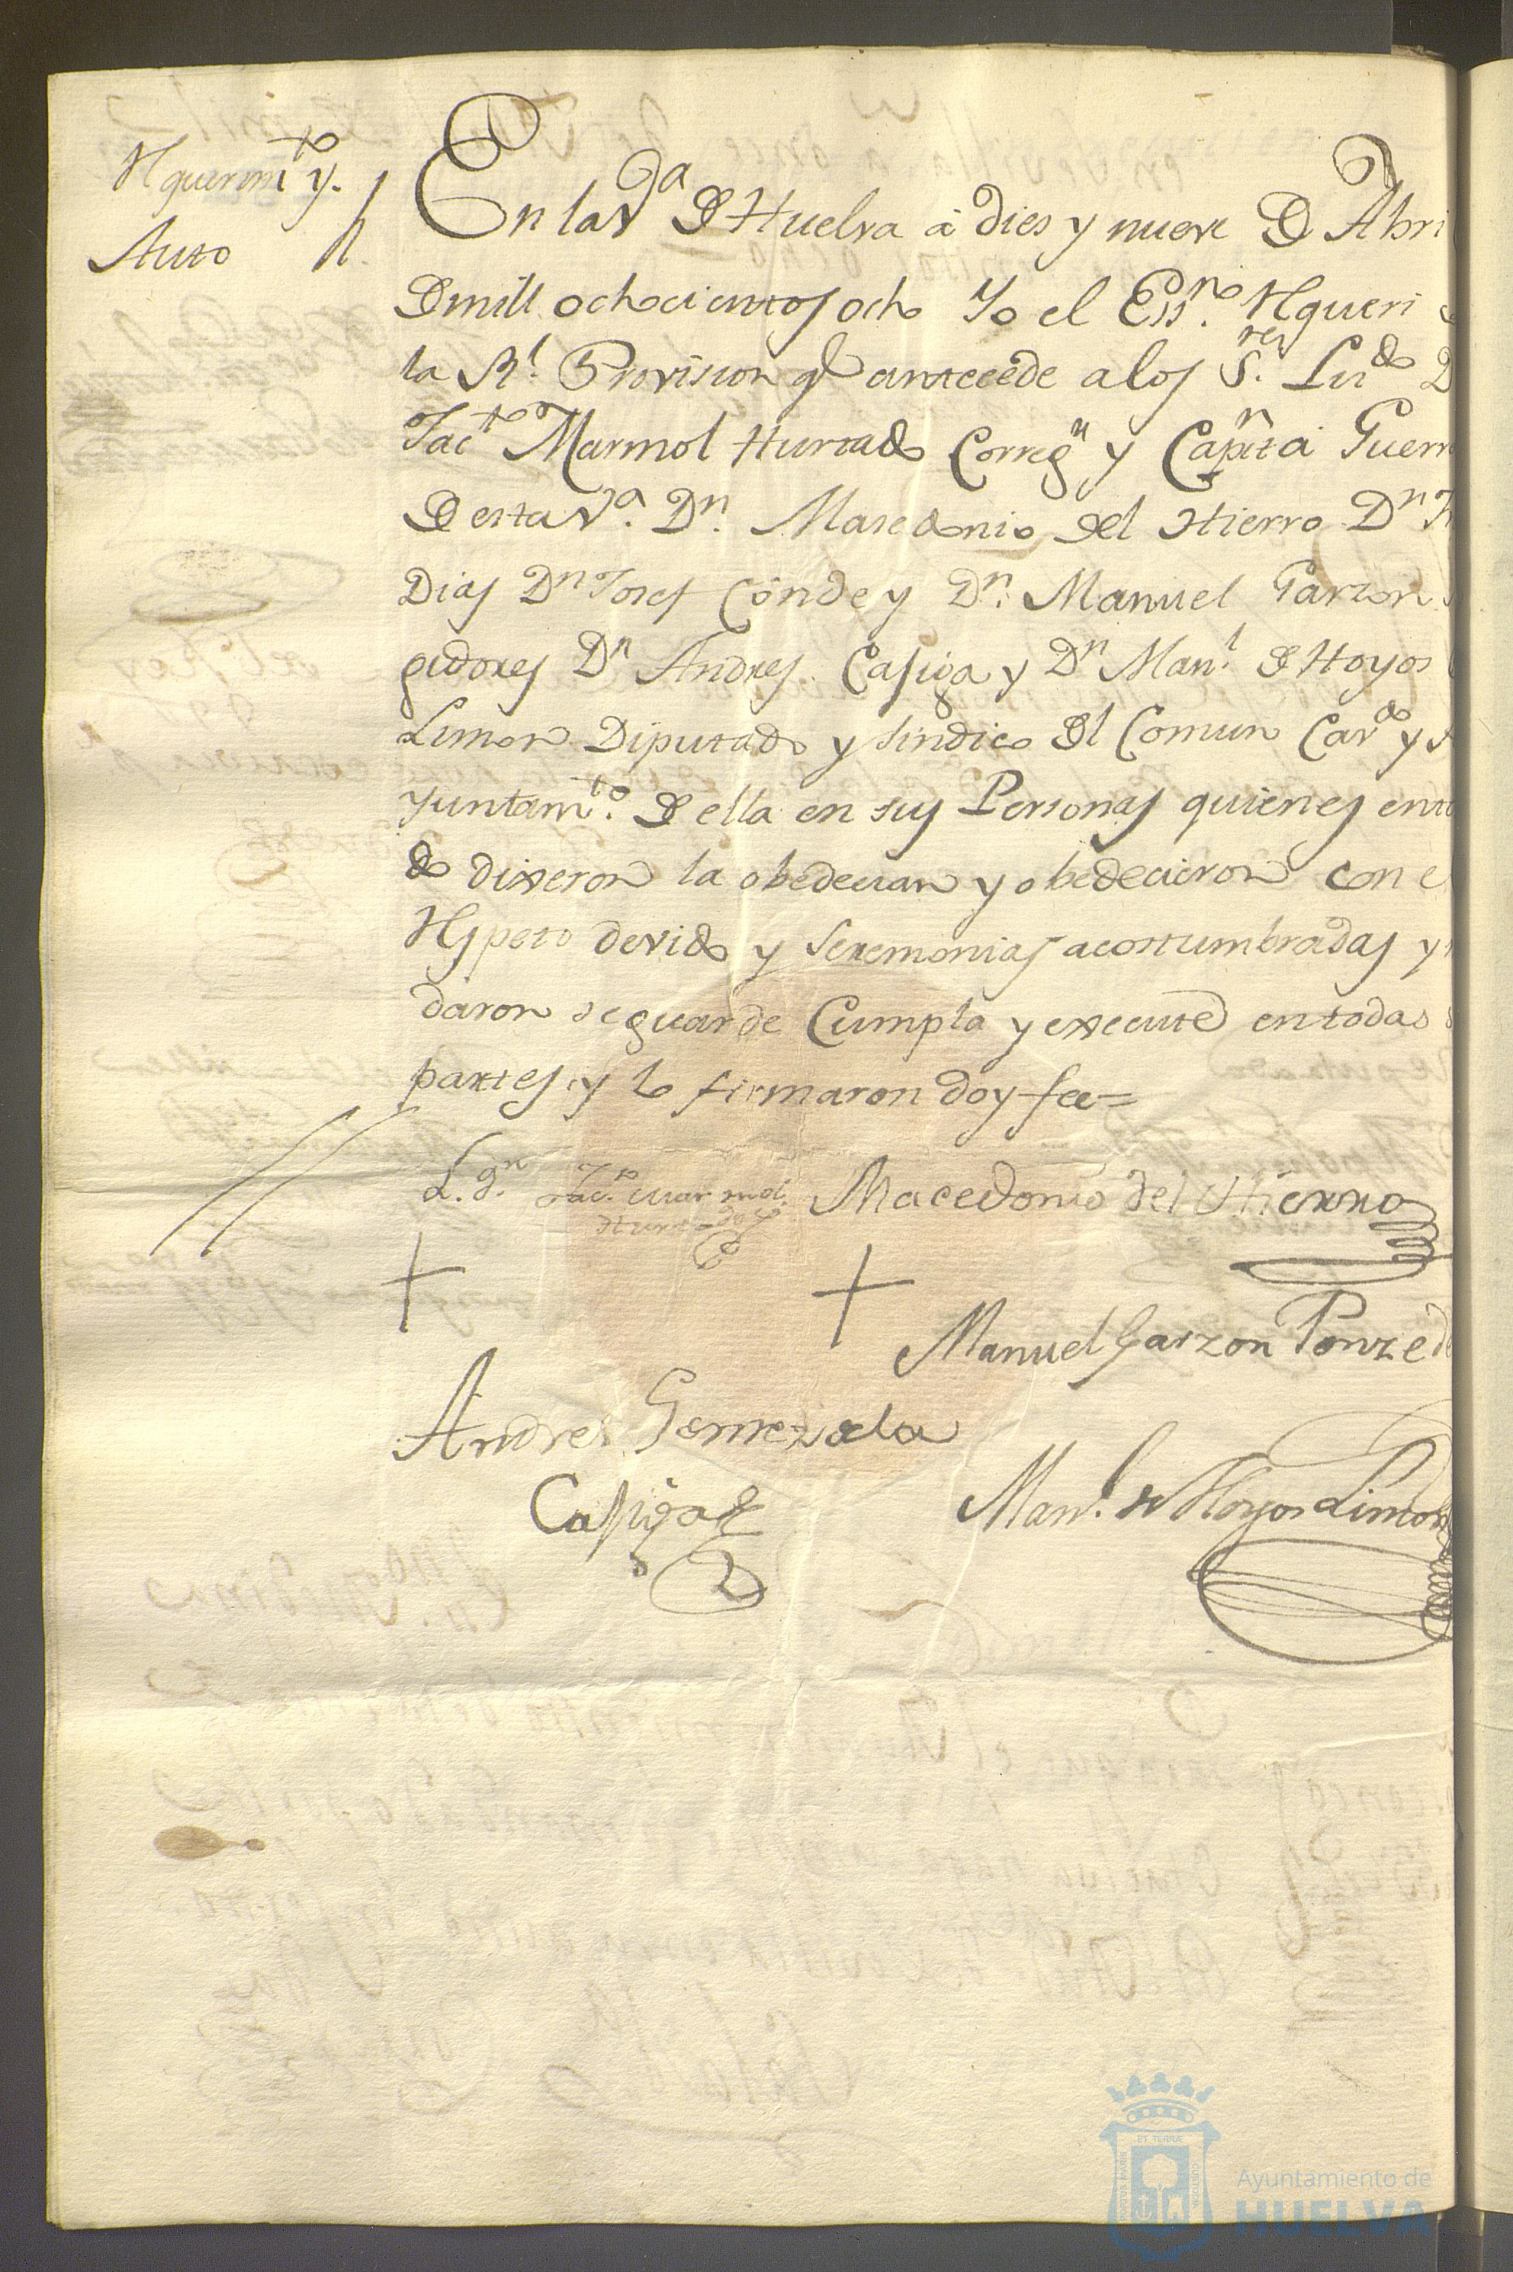 Requerimto y
Auto
En la Va de Huelva á dies y nueve de Abri
de mill ochocientos ocho Yo el Essno. Requeri
la Rl. Provision qe antecede a los Sres. Licdo D
Jacto Marmol Hurtado Corregr y Capn á Guerr
de esta Va. Dn. Masedonio del Hierro Dn
Dias Dn Josef Conde y Dn. Manuel Garzon
gidores Dn Andres Casiga y Dn Manl. de Hoyos
Limon Diputado y Sindico del Comun Cavdo y
yuntamto. de ella en sus Personas quienes ente
do dixeron la obedecian y obedecieron con e
Respeto devido y Seremonias acostumbradas y
daron se guarde Cumpla y execute en todas
partes y lo firmaron doy fee=
Jacto Marmol Macedonio del Hierro
Hurtado
Manuel Garzon Ponze de
Andres
Casiga Manl. de Hoyos Limon
Ayuntamiento de
HUELVA